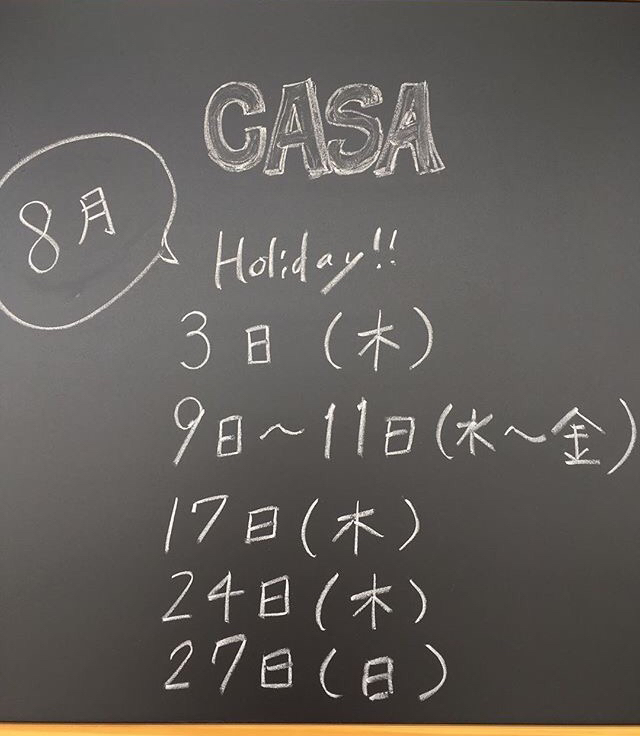 CASA
8月
Holiday!!
3日(木)
9日～11日(水～金)
17日(木)
24日(木)
27日(日)